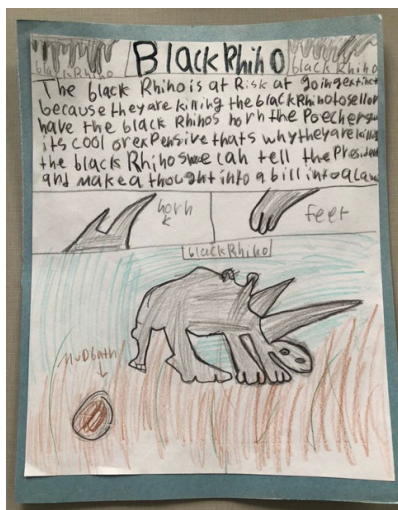 Black Rhino
black Rhino
black Rhino
The black Rhino is at Risk at going extinct
because they are killing the black Rhino to sell or
have the black Rhinos horn the Poechers
its cool or expensive thats why they are
the black Rhinos we can tell the President
and make a thought into a bill into a law
horn
feet
black Rhino
MuDbath